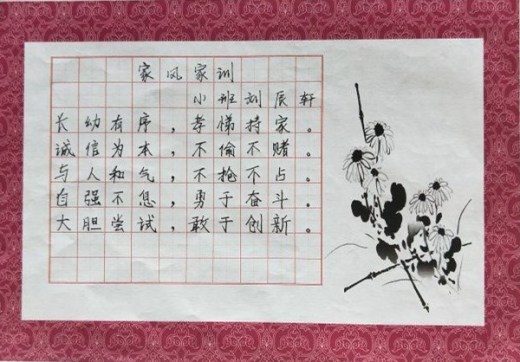 家风家训
小班刘辰轩
长幼有序，孝悌持家。
诚信为本，不偷不赌。
与人和气，不抢不占。
自强不息，勇于奋斗。
大胆尝试，敢于创新。